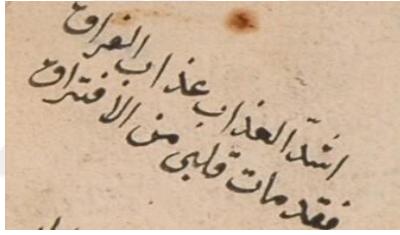 اشدّ العذاب عذاب الفراق
فقد مات قلبى من الافتراق